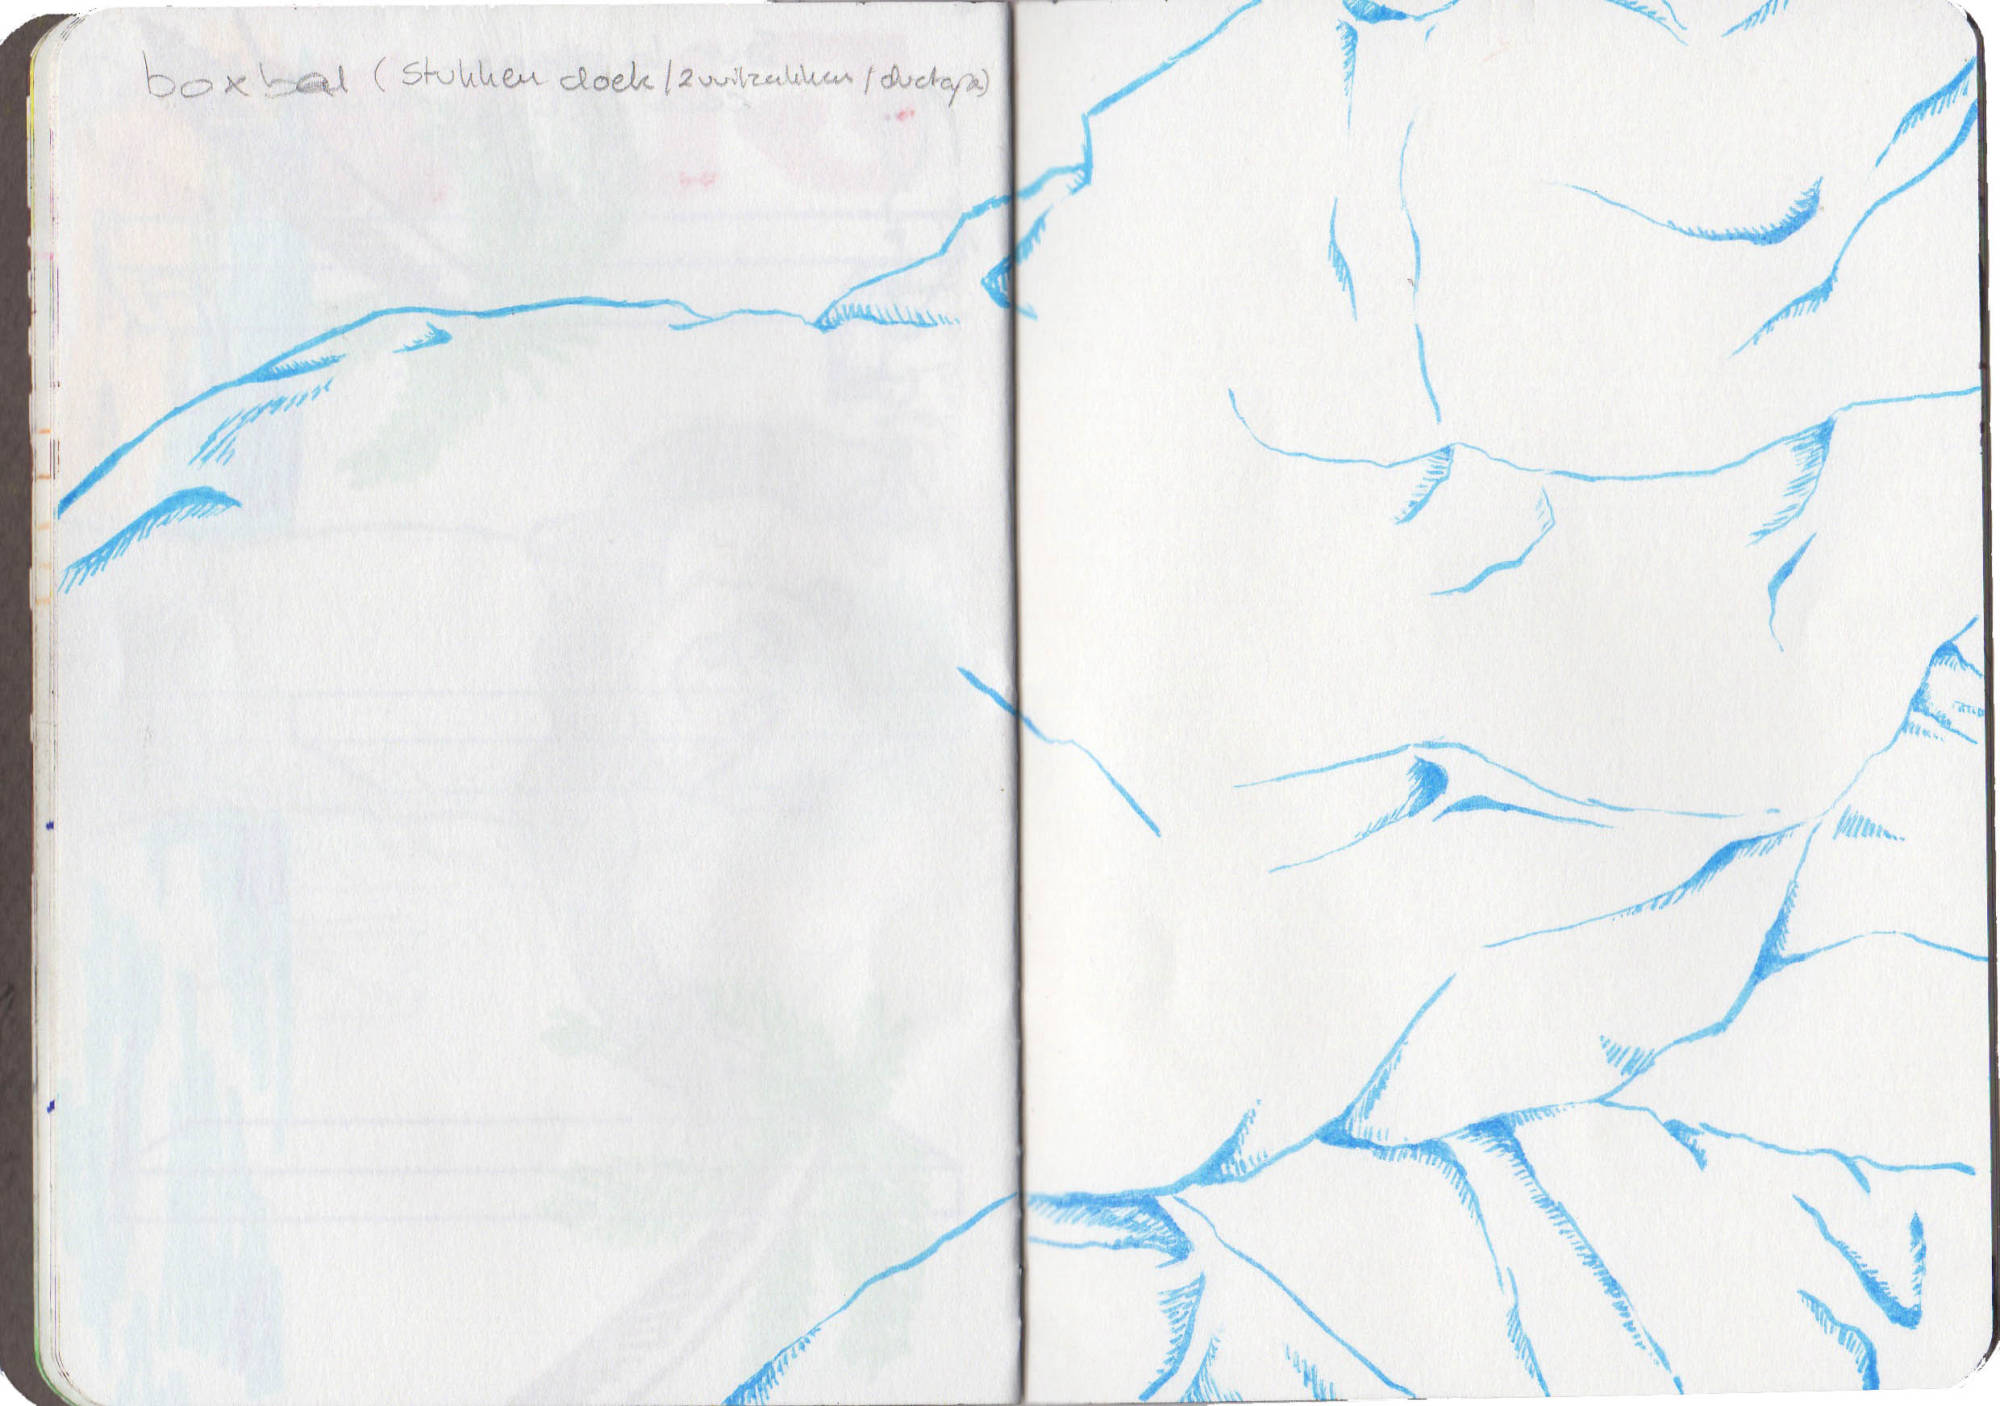 boxbal (stukken doek / 2 vuilzakken / ductape)